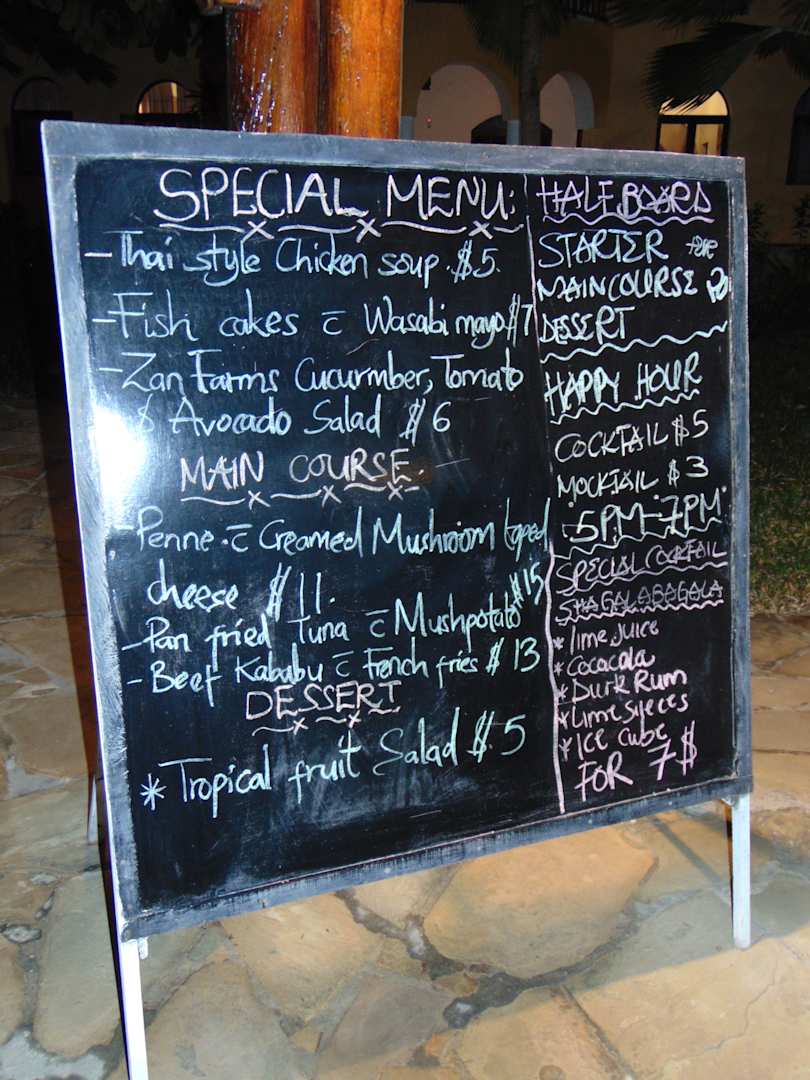 SPECIAL MENU:
- Thai style Chicken soup. $5.
- Fish cakes c̄ Wasabi mayo $7
- Zan Farms Cucurmber, Tomato
& Avocado Salad $6
MAIN COURSE.
- Penne c̄ Creamed Mushroom toped
cheese $11.
- Pan fried Tuna c̄ Mushpotato $15
- Beef Kababu c̄ French fries $13
DESSERT
* Tropical fruit Salad $.5
HALF BOARD
STARTER
MAIN COURSE
DESSERT
HAPPY HOUR
COCKTAIL $5
MOCKTAIL $3
5PM-7PM
SPECIAL COCKTAIL
SHAGALABAGALA
* lime juice
* Cocacola
* Durk Rum
* Lime slieces
* Ice cube
FOR 7$